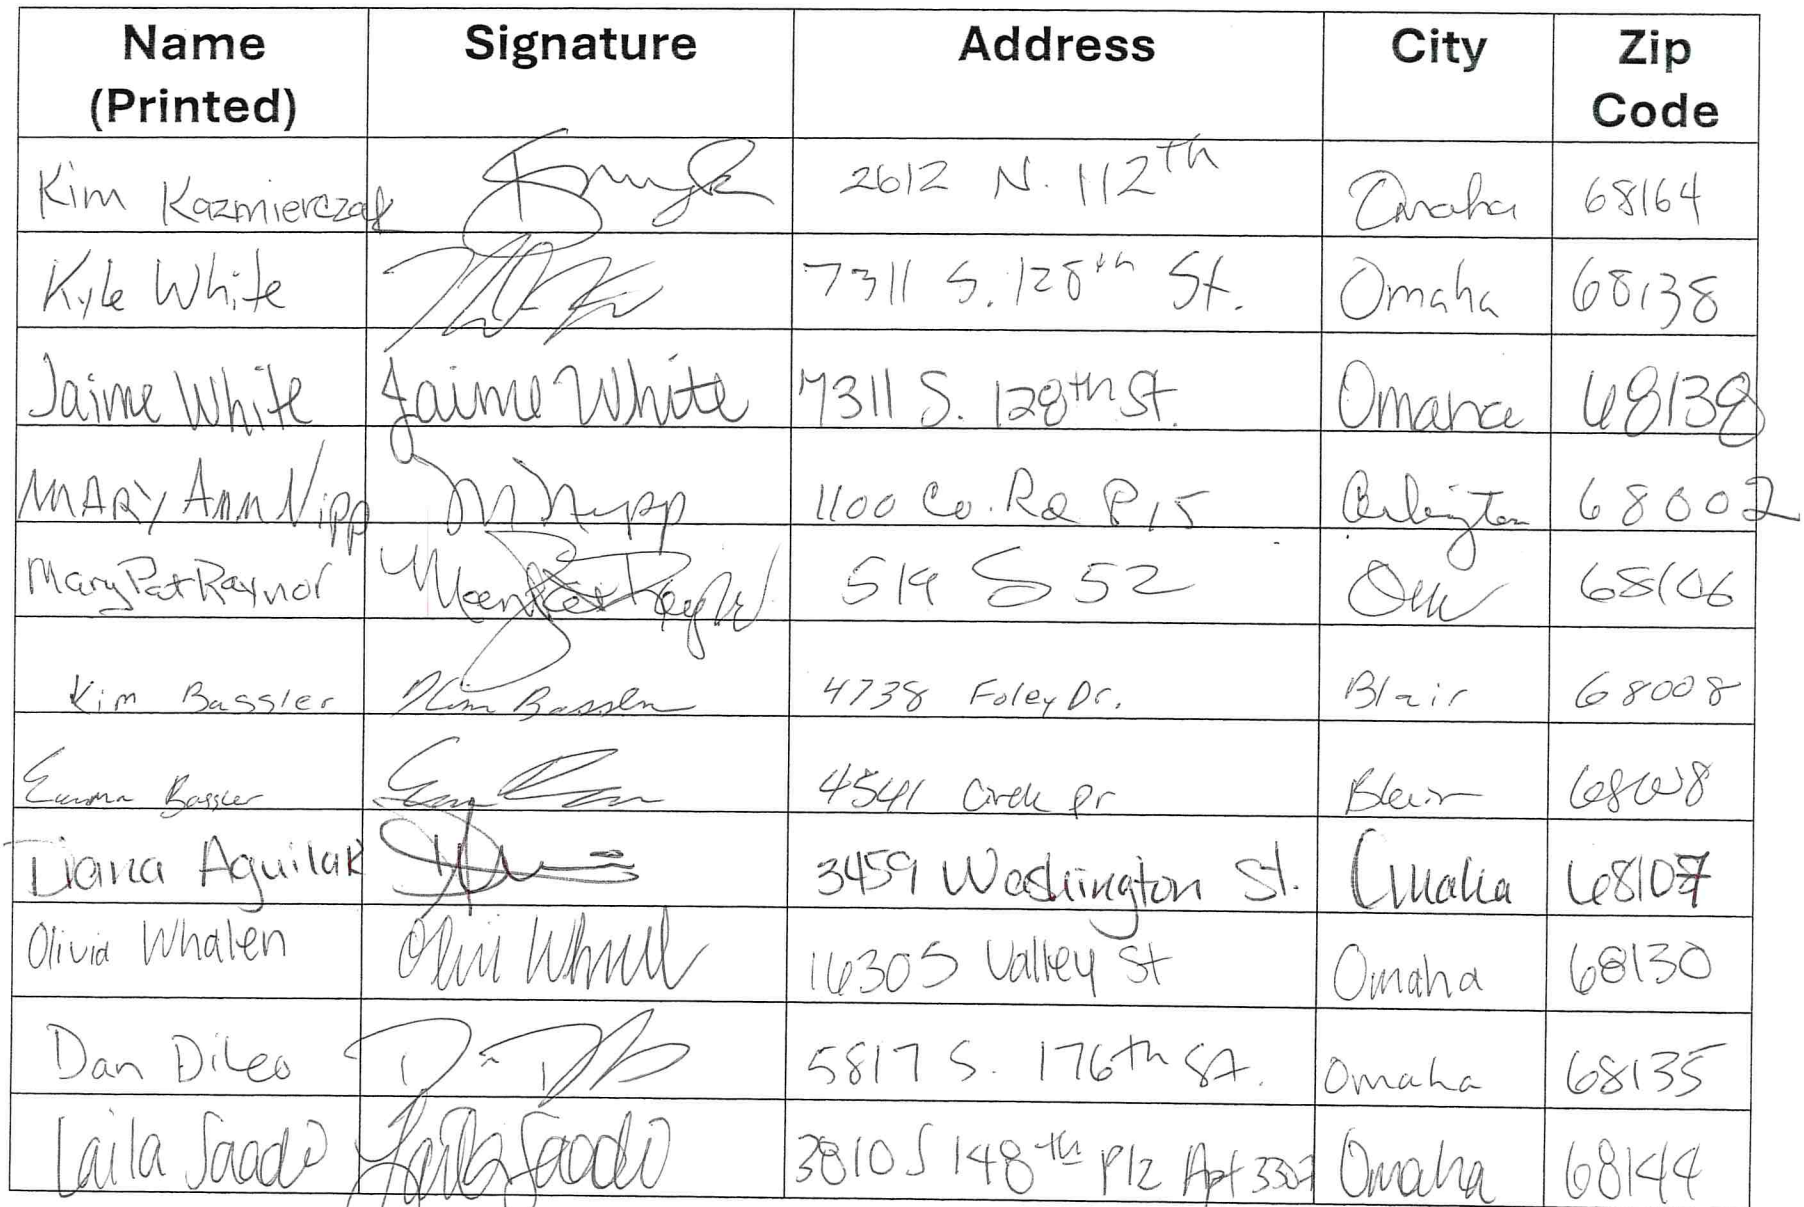 Name Signature Address City Zip
(Printed) Code
Kim Kazmierczak 2612 N. 112th Omaha 68164
Kyle White 7311 S. 128th St. Omaha 68138
Jaime White Jaime White 7311 S. 128th St. Omaha 68138
MARY Ann Nipp M Nipp 1100 Co. Rd P15 Arlington 68002
Mary Pat Raynor Mary Pat Raynor 519 S 52 68106
Kim Bassler Kim Bassler 4738 Foley Dr. Blair 68008
Emma Bassler 4541 Circle Dr Blair 68008
Diana Aguilar 3459 Washington St. Omaha 68107
Olivia Whalen Olivia Whalen 16305 Valley St Omaha 68130
Dan DiLeo 5817 S. 176th St. Omaha 68135
Laila Saadi Laila Saadi 3810 S 148th Plz Apt Omaha 68144